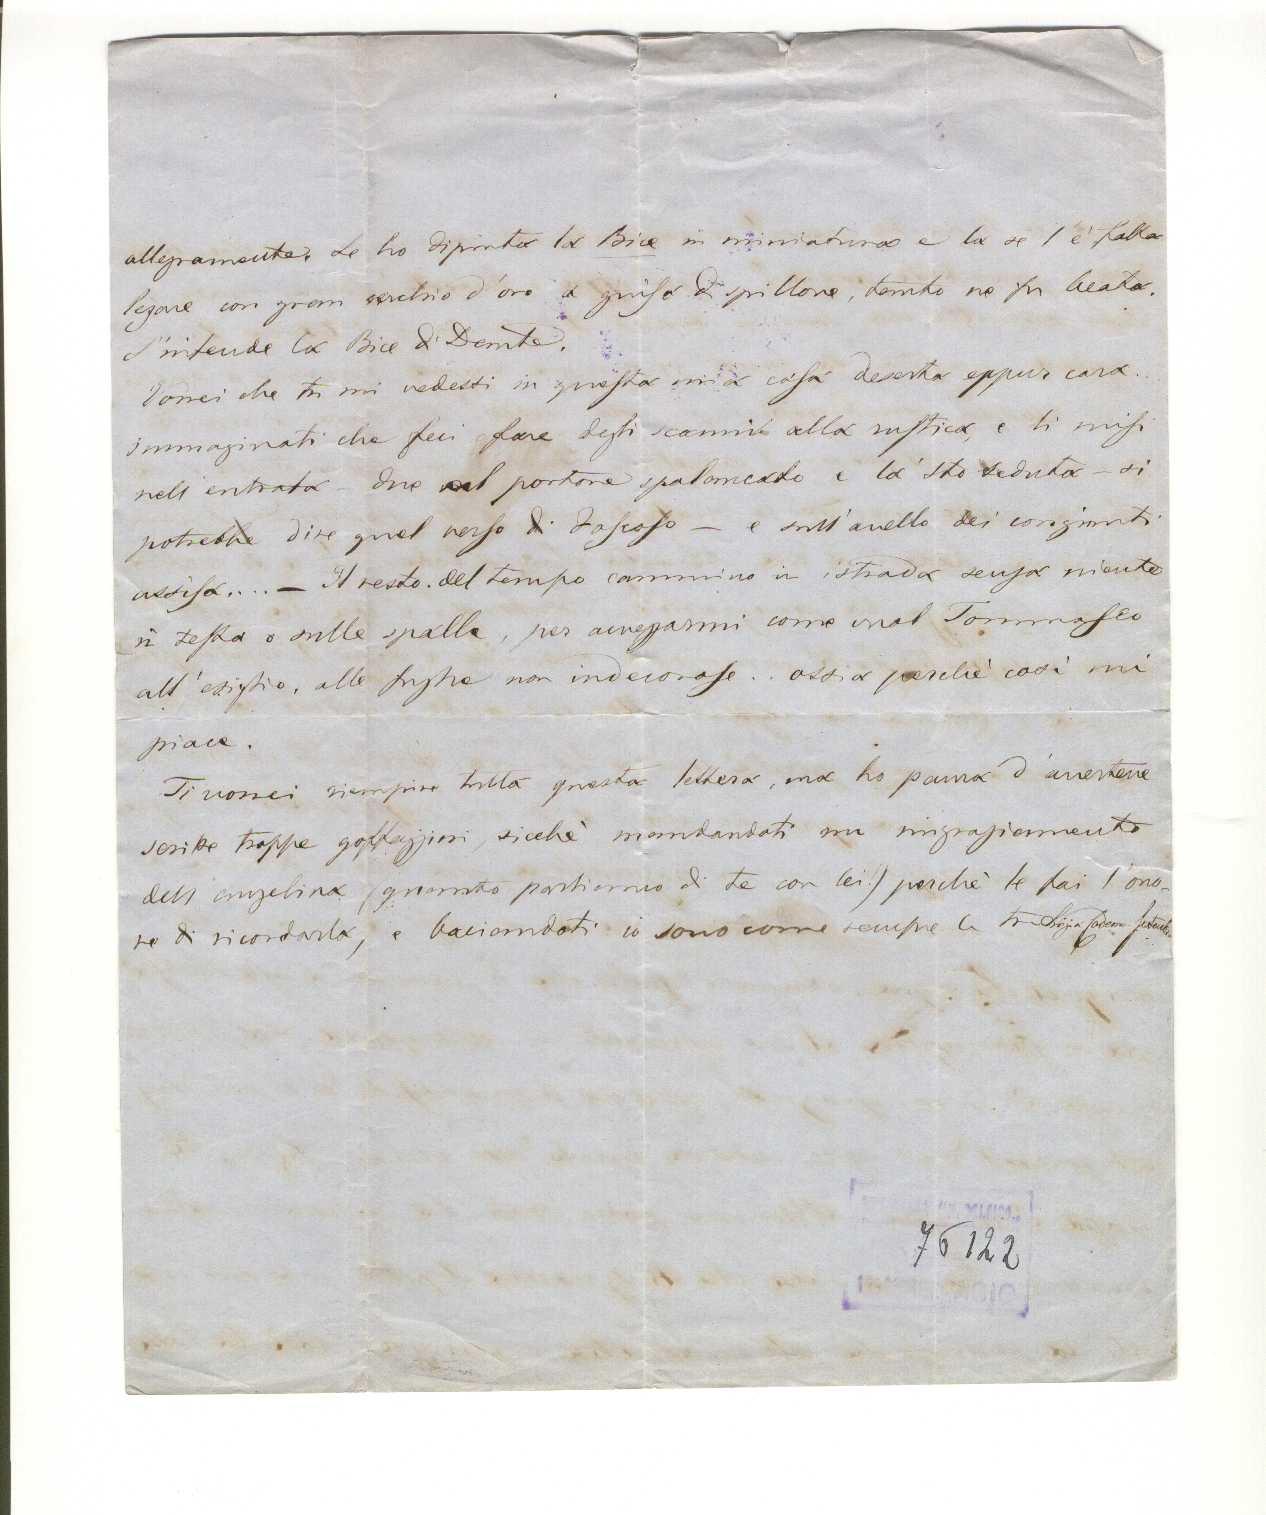 allegramente. Le ho dipinta la Bice in miniatura e la se l'è fatta
legare con gran cerchio d'oro a guisa di spillone, tanto ne fu beata.
S'intende la Bice di Dante.
Vorrei che tu mi vedessi in questa mia casa deserta eppur cara.
immaginati che feci fare degli scanni alla rustica, e li misi
nell'entrata – due nel portone spalancato e là sto seduta – si
potrebbe dire quel verso di – e sull'avello dei congiunti
assisa.... – Il resto del tempo cammino in istrada senza niente
in testa o sulle spalle, per avvezzarmi come vual Tommaseo
all'esiglio, alle fughe non indecorose .. ossia perchè così mi
piace.
Ti vorrei riempire tutta questa lettera, ma ho paura d'avertene
scritte troppe goffaggini, sicchè mandandoti un ringraziamento
dell'angelina (quanto parliamo di te con lei!) perchè le fai l'ono-
re di ricordarla, e baciandoti io sono come sempre la tua
76122